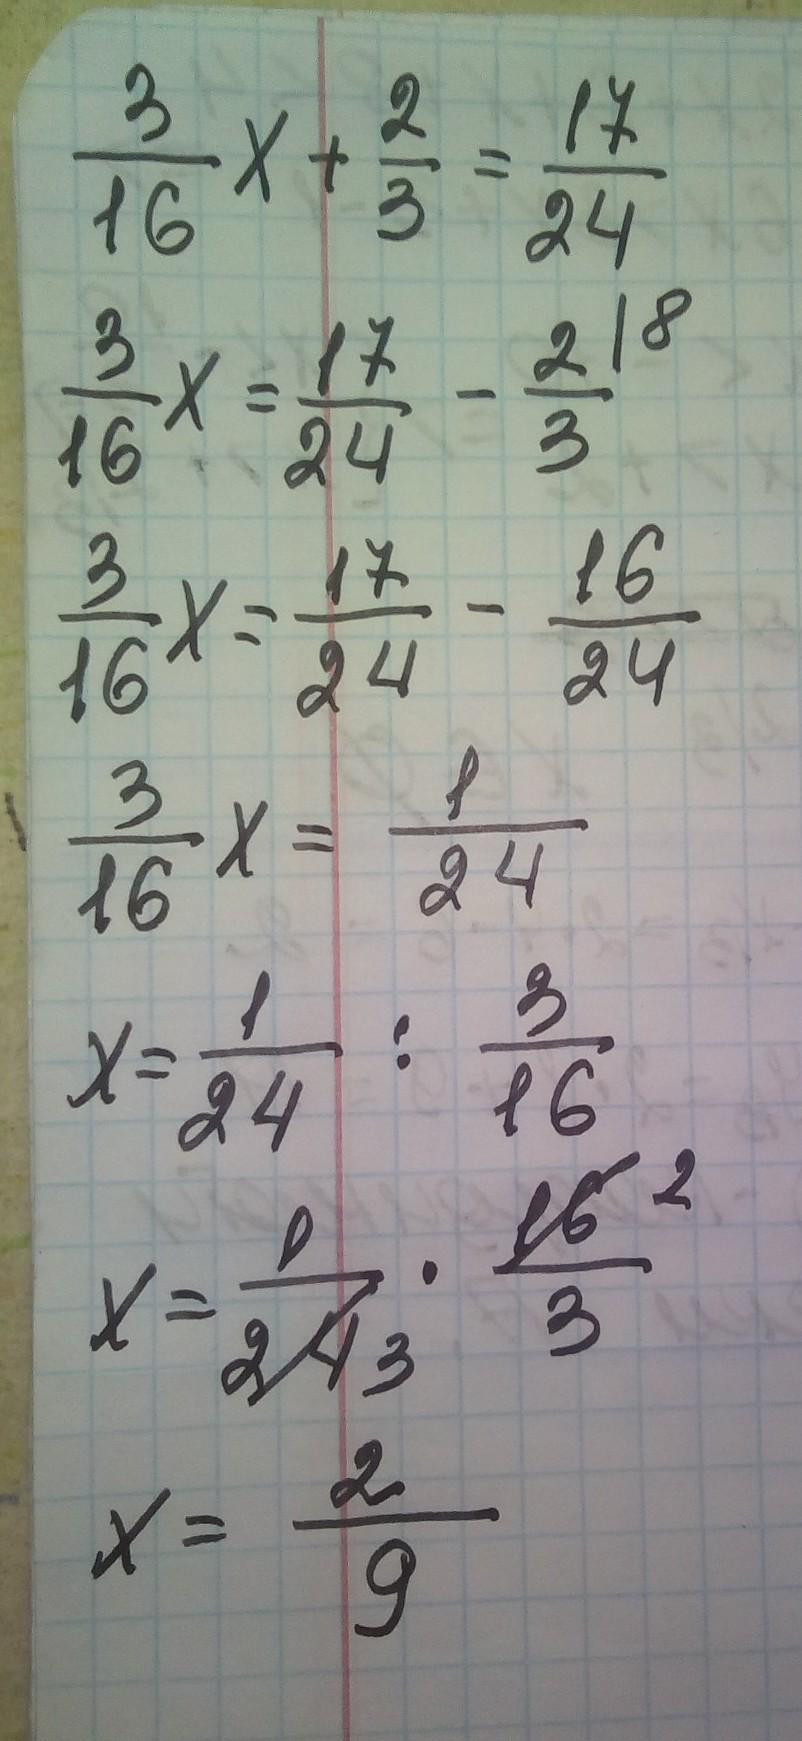 3/16 x + 2/3 = 17/24
3/16 x = 17/24 - 2/3 |8
3/16 x = 17/24 - 16/24
3/16 x = 1/24
x = 1/24 : 3/16
x = 1/24 3 · 16 2/3
x = 2/9